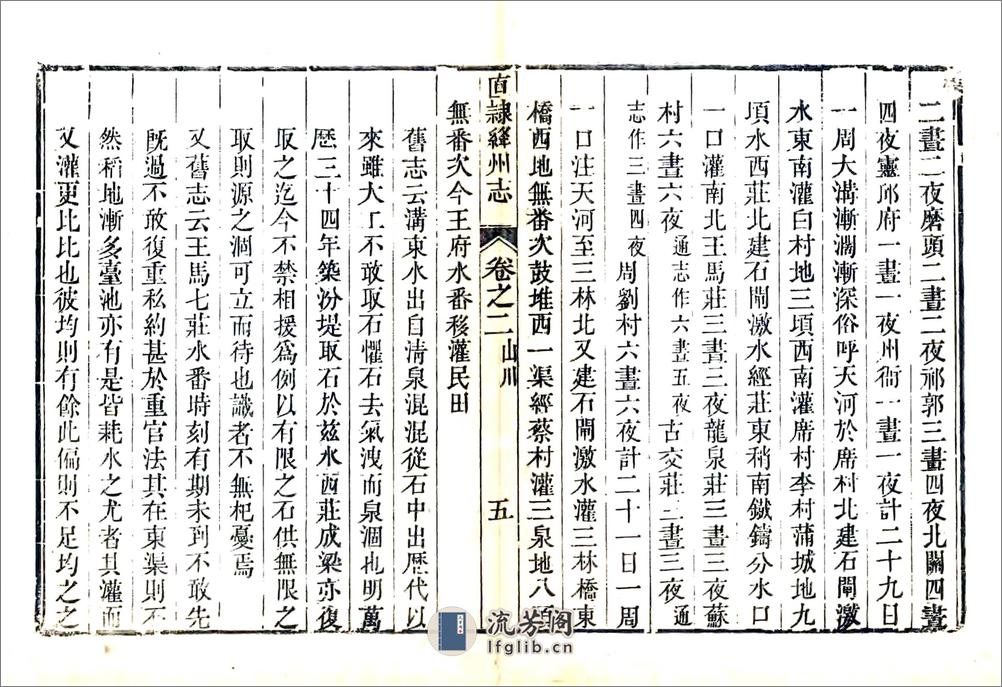 二晝二夜磨頭二晝二夜祁郭三晝四夜北關四晝
四夜靈邱府一晝一夜州衙一晝一夜計二十九日
一周大溝漸濶漸深俗呼天河於席村北建石閘激
水東南灌白村地三頃西南灌席村李村蒲城地九
頃水西莊北建石閘激水經莊東稍南鐵鑄分水口
一口灌南北王馬莊三晝三夜龍泉莊三晝三夜蘇
村六晝六夜通志作六晝五夜古交莊三晝三夜通
志作三晝四夜周劉村六晝六夜計二十一日一周
一口注天河至三林北又建石閘激水灌三林橋東
橋西地無番次鼓堆西一渠經蔡村灌三泉地八頃
無番次今王府水番移灌民田
直隸絳州志
卷之二 山川
五
舊志云溝東水出自清泉混混從石中出歷代以
來雖大工不敢取石懼石去氣洩而泉涸也明萬
歷三十四年築汾堤取石於茲水西莊成梁亦復
取之迄今不禁相援爲例以有限之石供無限之
取則源之涸可立而待也識者不無杞憂焉
又舊志云王馬七莊水番時刻有期未到不敢先
旣過不敢復重私約甚於重官法其在東渠則不
然稻地漸多臺池亦有是皆耗水之尤者其灌而
又灌更比比也彼均則有餘此偏則不足均之之
流芳阁
lfglib.cn